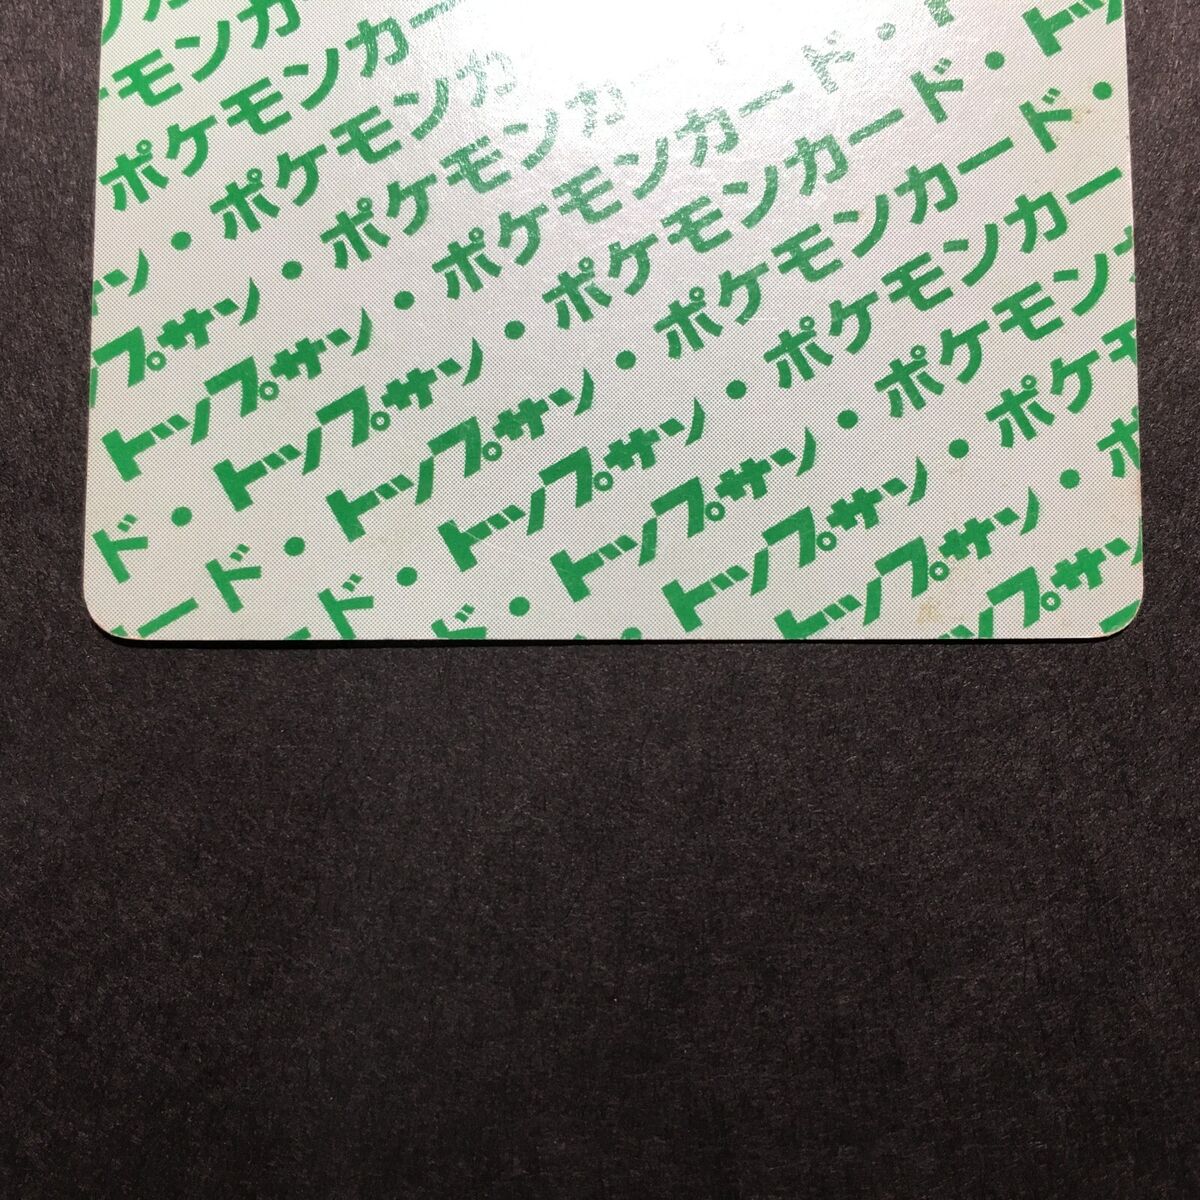 モンカ
ポケモンカー
サン・ポケモンカ
プサン・ポケモンカ
トップサン・ポケモンカード・ト
ド・トップサン・ポケモンカード・トッ
ード・トップサン・ポケモンカード・
ド・トップサン・ポケモンカー
ド・トップサン・ポケモン
・トップサン・ポケモ
トップサン・ポ
プサン